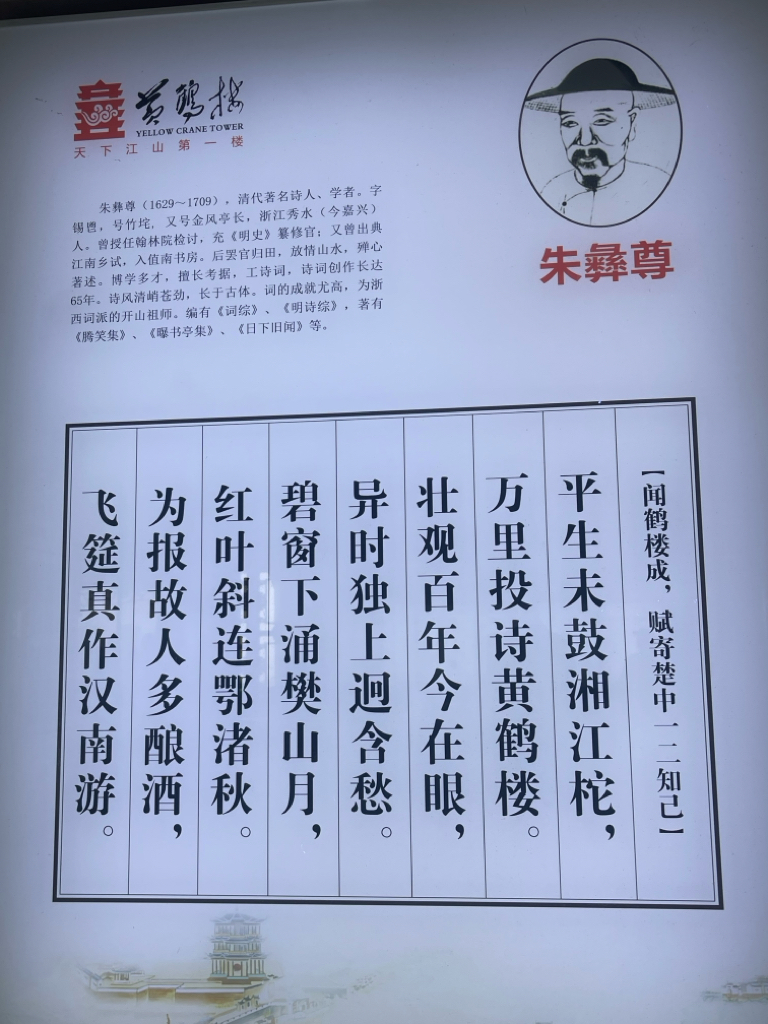 黄鹤楼
YELLOW CRANE TOWER
天下江山第一楼
朱彝尊
朱彝尊（1629～1709），清代著名诗人、学者。字
锡鬯，号竹垞，又号金风亭长，浙江秀水（今嘉兴）
人。曾授任翰林院检讨，充《明史》纂修官；又曾出典
江南乡试，入值南书房。后罢官归田，放情山水，殚心
著述。博学多才，擅长考据，工诗词，诗词创作长达
65年。诗风清峭苍劲，长于古体。词的成就尤高，为浙
西词派的开山祖师。编有《词综》、《明诗综》，著有
《腾笑集》、《曝书亭集》、《日下旧闻》等。
【闻鹤楼成，赋寄楚中一二知己】
平生未鼓湘江柁，
万里投诗黄鹤楼。
壮观百年今在眼，
异时独上迥含愁。
碧窗下涌樊山月，
红叶斜连鄂渚秋。
为报故人多酿酒，
飞筵真作汉南游。